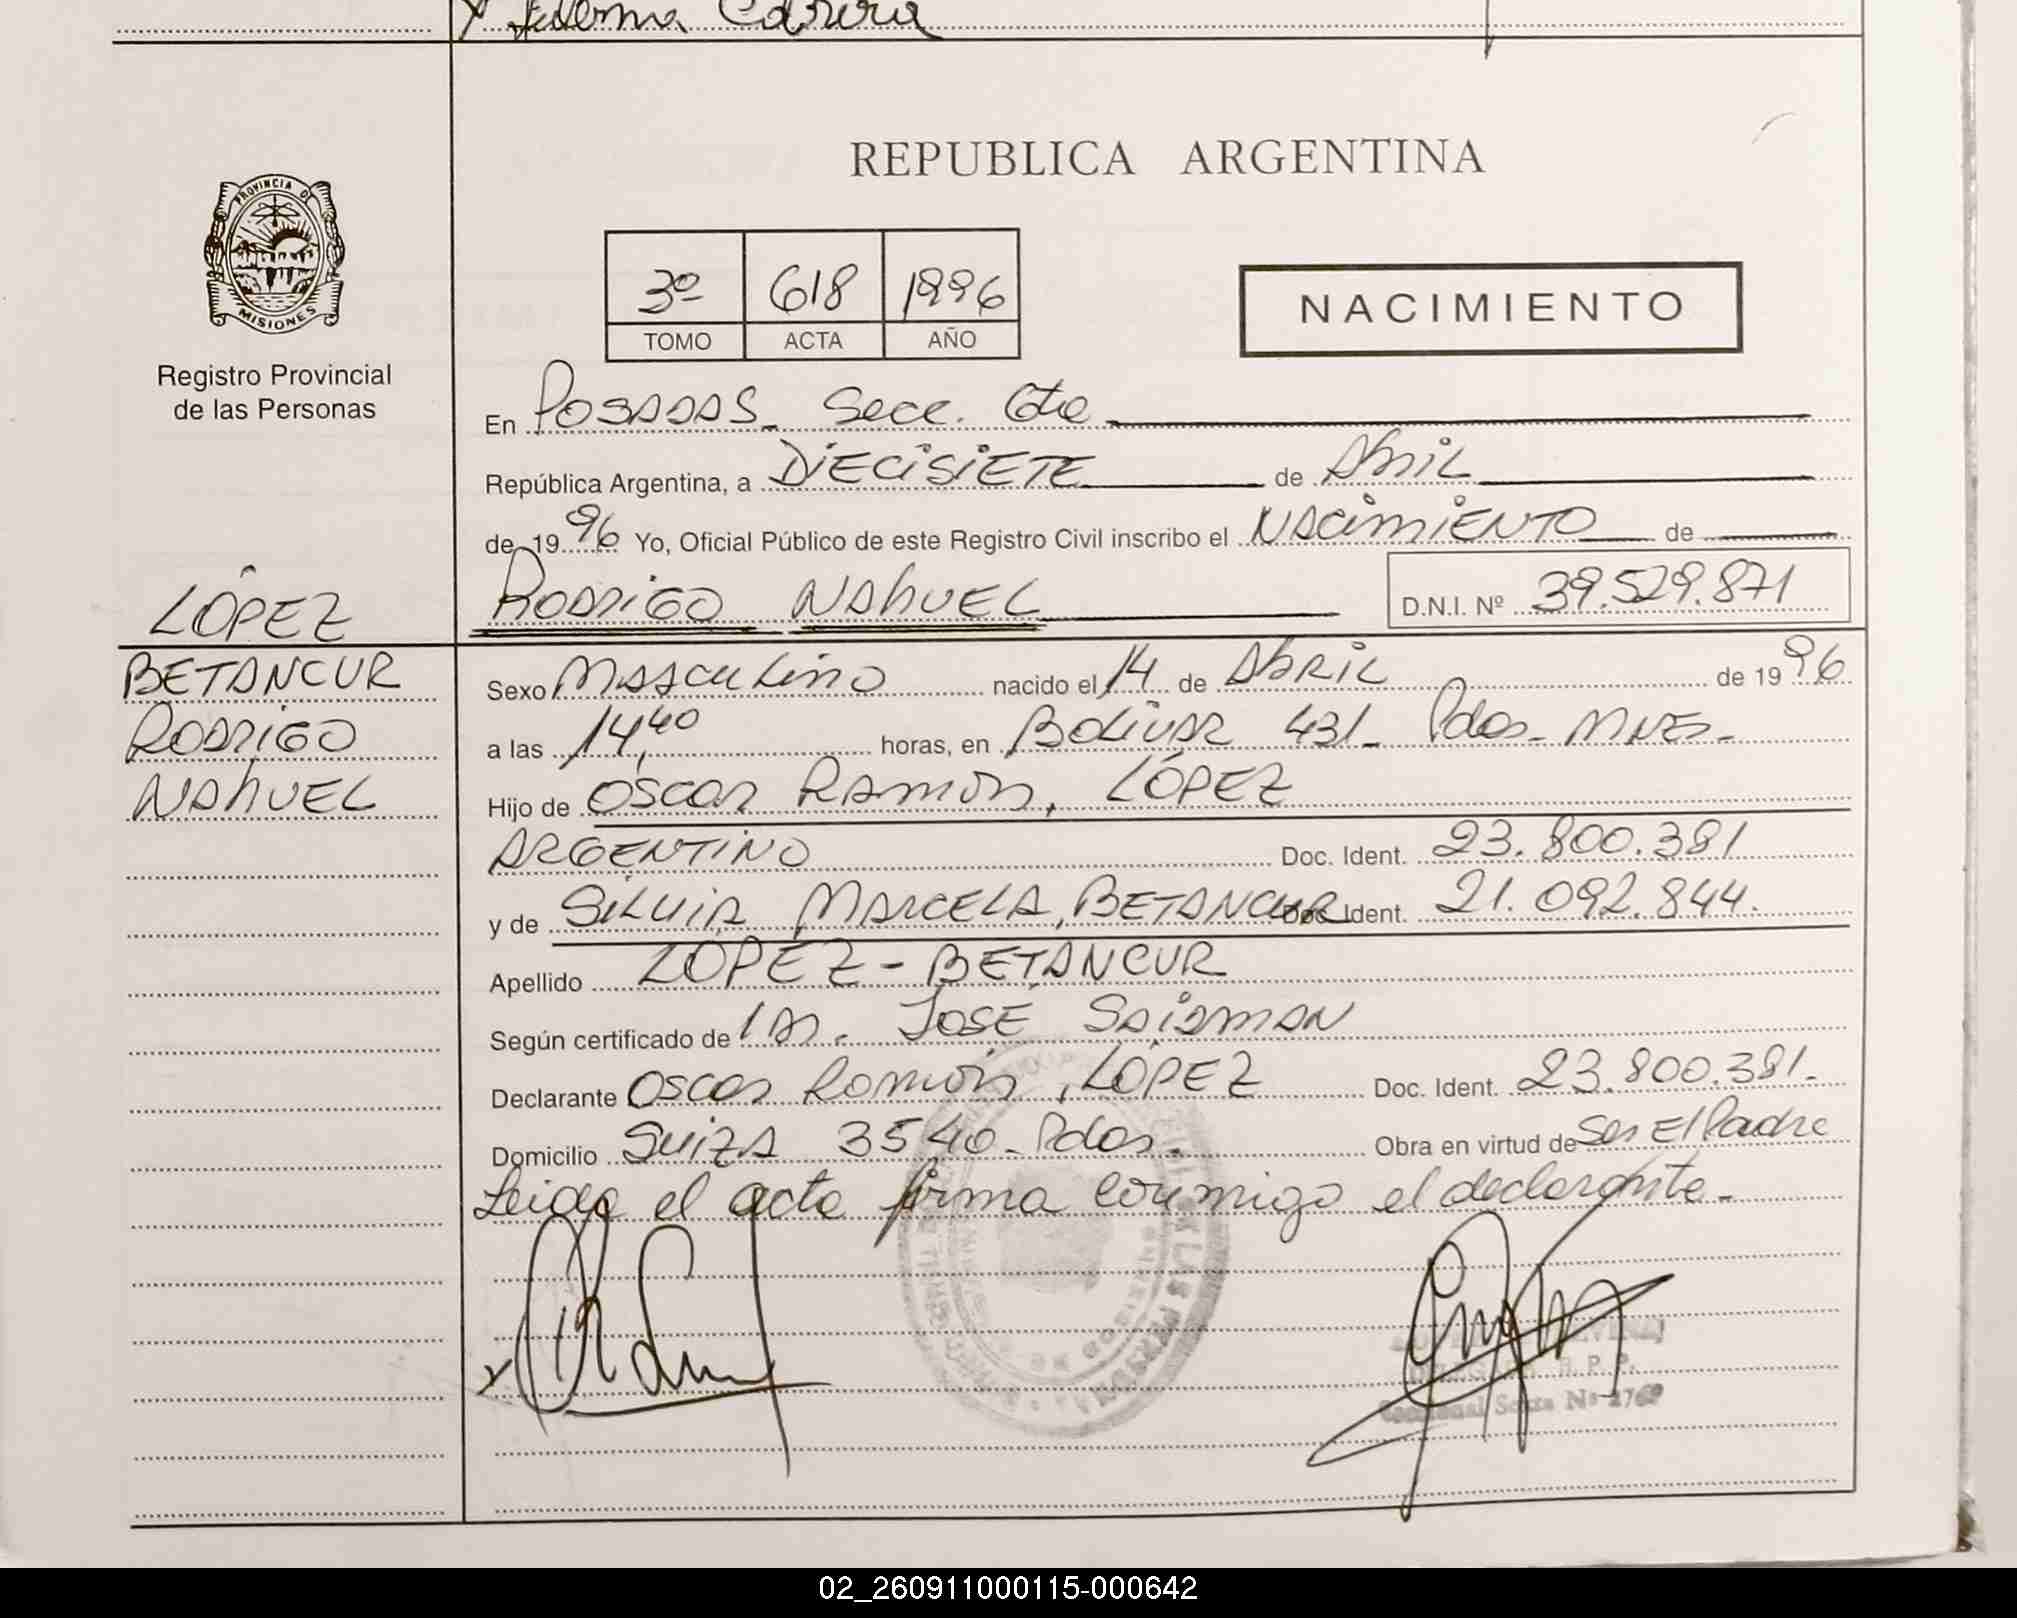 Cabrera
REPUBLICA ARGENTINA
PROVINCIA DE
MISIONES
Registro Provincial
de las Personas
3º 618 1996
TOMO ACTA AÑO
NACIMIENTO
En POSADAS - Secc. 6ta
República Argentina, a DIECISIETE de Abril
de 1996 Yo, Oficial Público de este Registro Civil inscribo el NACIMIENTO de
RODRIGO NAHUEL D.N.I. Nº 39.529.871
LÓPEZ
BETANCUR
RODRIGO
NAHUEL
Sexo MASCULINO nacido el 14 de ABRIL de 1996
a las 14,40 horas, en BOLÍVAR 431 - Pdas - MNES -
Hijo de OSCAR RAMÓN, LÓPEZ
ARGENTINO Doc. Ident. 23.800.381
y de SILVIA MARCELA, BETANCUR Doc. Ident. 21.092.844.
Apellido LOPEZ - BETANCUR
Según certificado de JOSÉ
Declarante OSCAR RAMÓN, LÓPEZ Doc. Ident. 23.800.381.-
Domicilio SUIZA 3540 - Pdas. Obra en virtud de Ser El Padre
Leida el acta firma conmigo el declarante -
R. P. P.
Seccional Sexta Nº
02_260911000115-000642